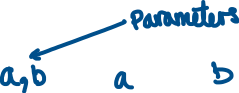 Parameters
a,b a b